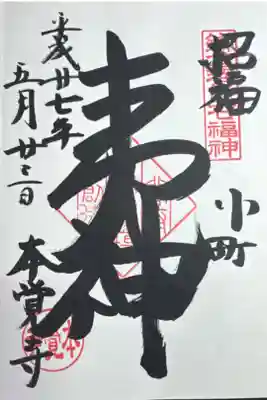 招福
小町
夷神
平成廿七年
五月廿三日
本覚寺
福神